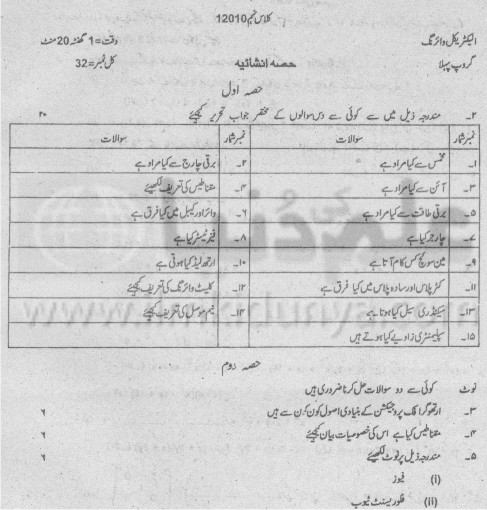 کلاس نہم 12010
الیکٹریکل وائرنگ
وقت=1 گھنٹہ 20 منٹ
گروپ پہلا
حصہ انشائیہ
کل نمبر=32
حصہ اول
۲۔ مندرجہ ذیل میں سے کوئی سے دس سوالوں کے مختصر جواب تحریر کیجئے ۲۰
نمبر شمار سوالات نمبر شمار سوالات
۱۔ مجلس سے کیا مراد ہے ۲۔ برقی چارج سے کیا مراد ہے
۳۔ آئن سے کیا مراد ہے ۴۔ مقناطیس کی تعریف لکھیئے
۵۔ برقی طاقت سے کیا مراد ہے ۶۔ وائر اور کیبل میں کیا فرق ہے
۷۔ چارجر کیا ہے ۸۔ فیز ٹیسٹر کیا ہے
۹۔ مین سوئچ کس کام آتا ہے ۱۰۔ ارتھ لیڈ کیا ہوتی ہے
۱۱۔ کٹر پلاس اور سادہ پلاس میں کیا فرق ہے ۱۲۔ کلیٹ وائرنگ کی تعریف کیجئے
۱۳۔ سیکنڈری سیل کیا ہوتا ہے ۱۴۔ نیم موصل کی تعریف کیجئے
۱۵۔ سپلیمنٹری زاویے کیا ہوتے ہیں
حصہ دوم
نوٹ کوئی سے دو سوالات حل کرنا ضروری ہیں
۳۔ ارتھوگرافک پروجیکشن کے بنیادی اصول کون کون سے ہیں ۶
۴۔ مقناطیس کیا ہے اس کی خصوصیات بیان کیجئے ۶
۵۔ مندرجہ ذیل پر نوٹ لکھیئے ۶
(i) فیوز
(ii) فلوریسنٹ ٹیوب